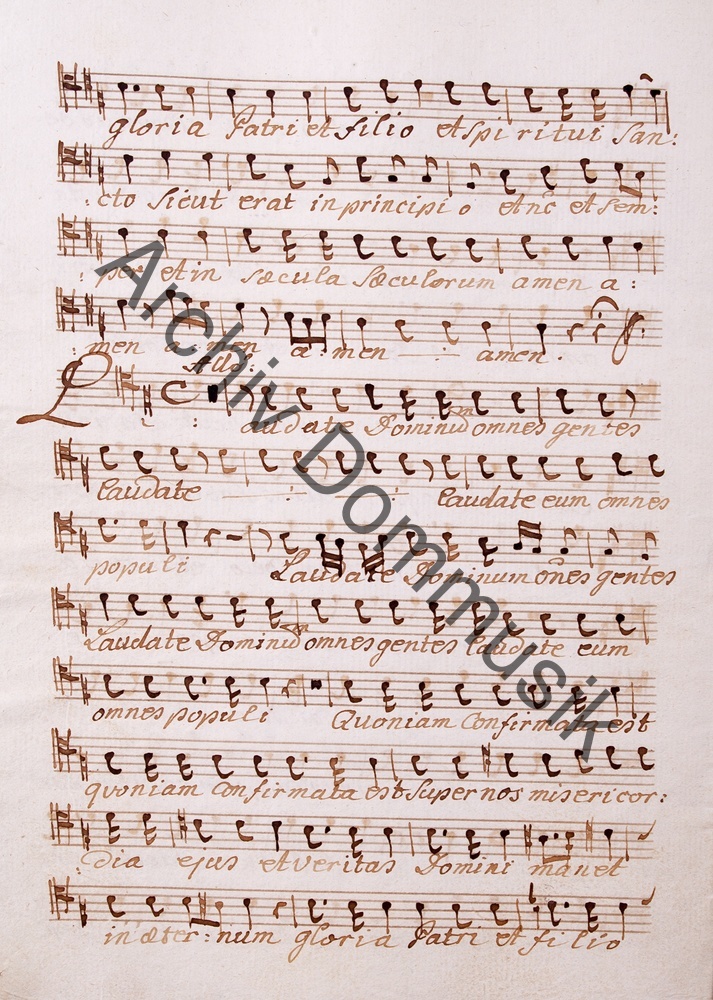 gloria Patri et filio et spi ritui san:
:cto sicut erat in principi o et nc et sem:
:per et in sæcula sæculorum amen a:
men a:men a:men amen.
All:
Laudate Dominum omnes gentes
laudate laudate eum omnes
populi Laudate Dominum omes gentes
Laudate Dominum omnes gentes laudate eum
omnes populi Quoniam Confirmata est
quoniam Confirmata est super nos misericor:
:dia ejus et veritas Domini manet
in æter:num gloria Patri et filio
Archiv Dommusik